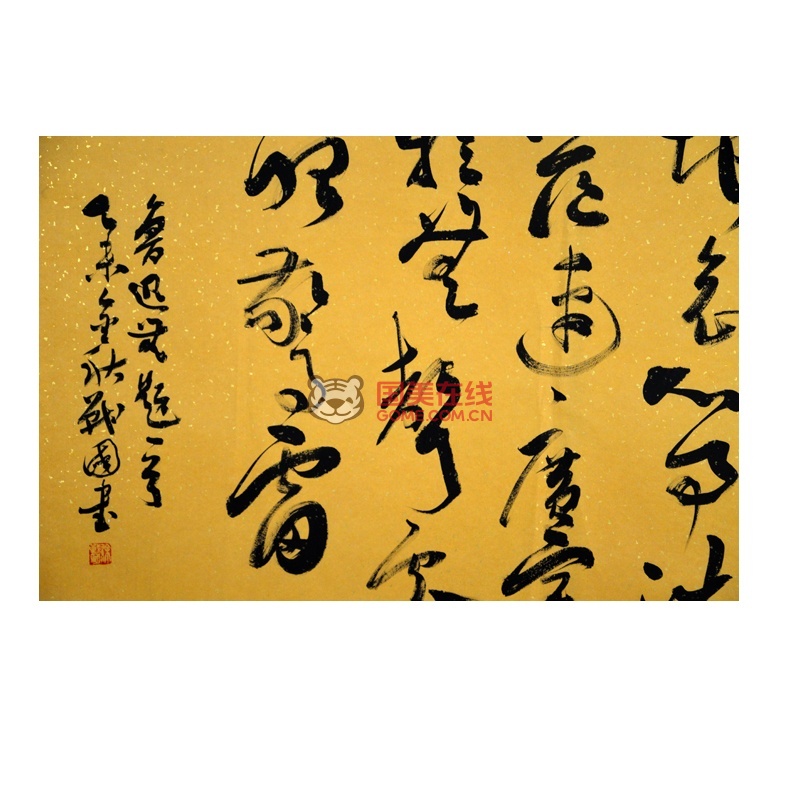 地哀心事浩
茫連廣宇
於無聲處
聽驚雷
魯迅無題一首
乙未金秋戰國書
国美在线
GOME.COM.CN